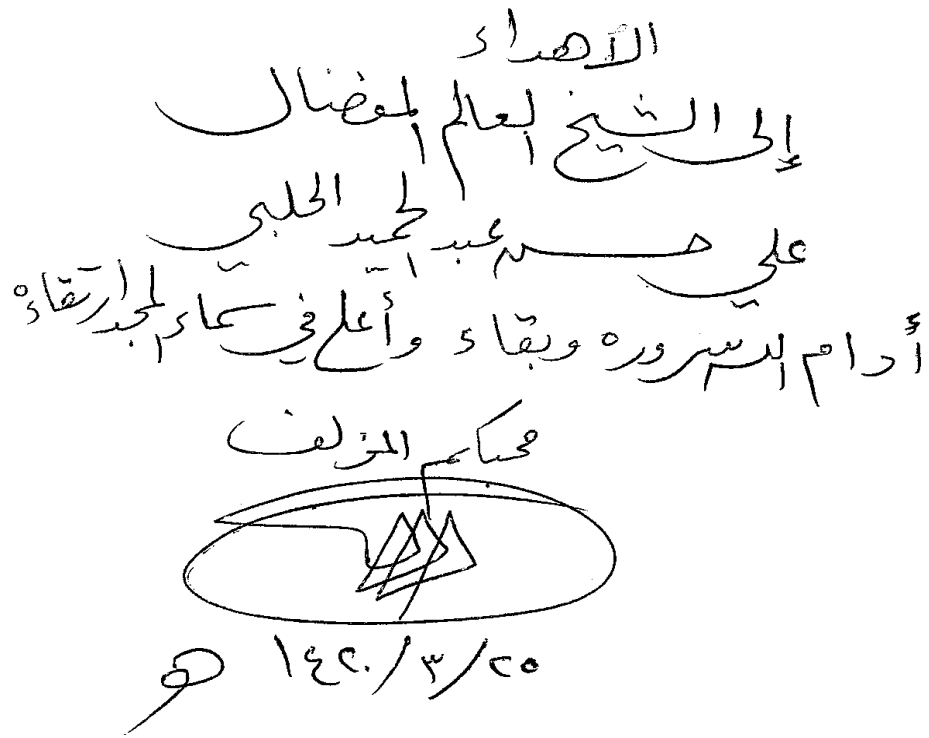 الاهداء
إلى الشيخ العالم المفضال
علي حسن عبد الحميد الحلبي
أدام الله سروره وبقاء وأعلى في سماء المجد ارتقاءه
محبكم المؤلف
٢٥/٣/١٤٢٠ هـ